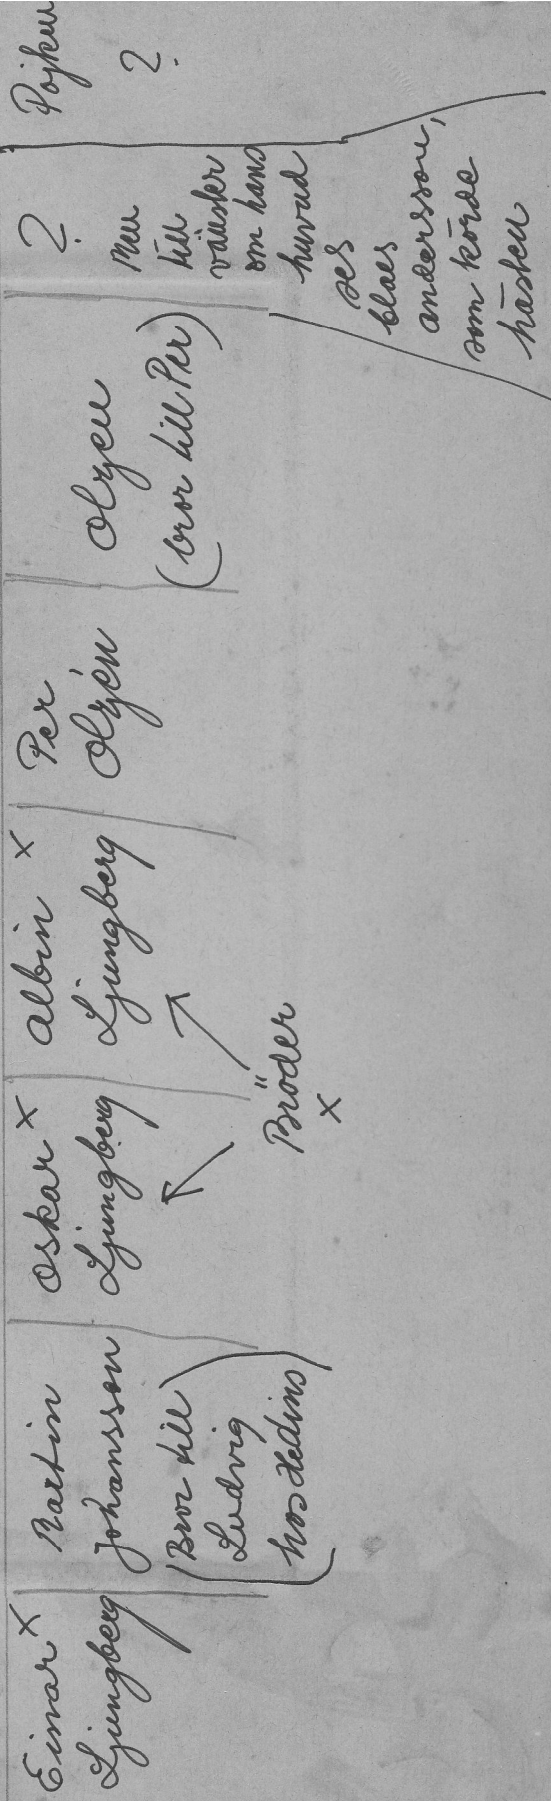 Einar x
Ljungberg
Martin
Johansson
(Bror till
Ludvig
hos Hedins)
Oskar x
Ljungberg
Albin x
Ljungberg
Bröder
x
Per
Olzén
Olzen
(bror till Per)
?
Men
till
vänster
om hans
huvud
ses
Claes
Andersson,
som körde
hästen
Pojken
?